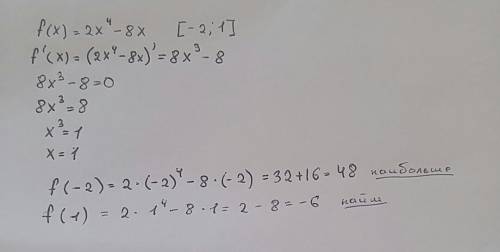 f(x) = 2x⁴ - 8x [-2; 1]
f'(x) = (2x⁴ - 8x)' = 8x³ - 8
8x³ - 8 = 0
8x³ = 8
x³ = 1
x = 1
f(-2) = 2 · (-2)⁴ - 8 · (-2) = 32 + 16 = 48 наибольше
f(1) = 2 · 1⁴ - 8 · 1 = 2 - 8 = -6 найм